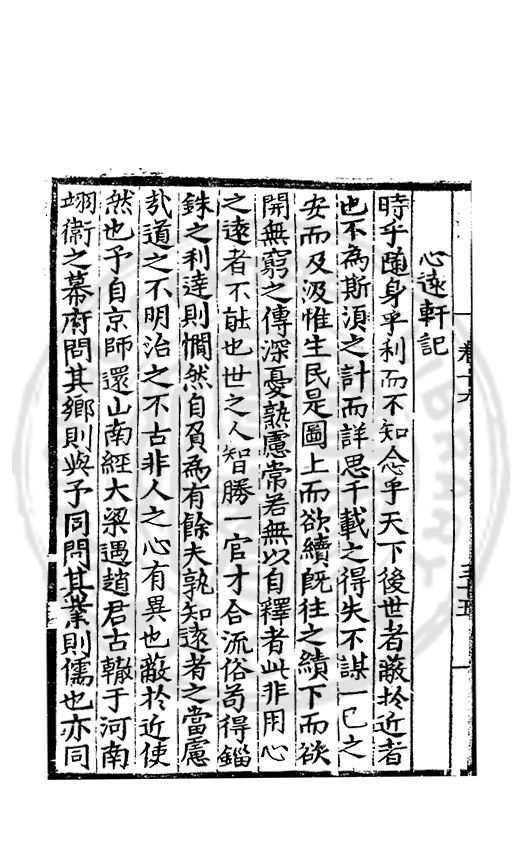 卷十九
三十五
心遠軒記
時乎隨身乎利而不知念乎天下後世者蔽於近者
也不為斯湏之計而詳思千載之得失不謀一己之
安而及汲惟生民是圖上而欲續旣往之績下而欲
開無窮之傳深憂熟慮常若無以自釋者此非用心
之遠者不能也世之人智勝一官才合流俗苟得錙
銖之利達則憪然自負為有餘夫孰知遠者之當慮
㢤道之不明治之不古非人之心有異也蔽於近使
然也予自京師還山南經大梁遇趙君古轍于河南
翊衛之幕府問其鄉則與予同問其業則儒也亦同